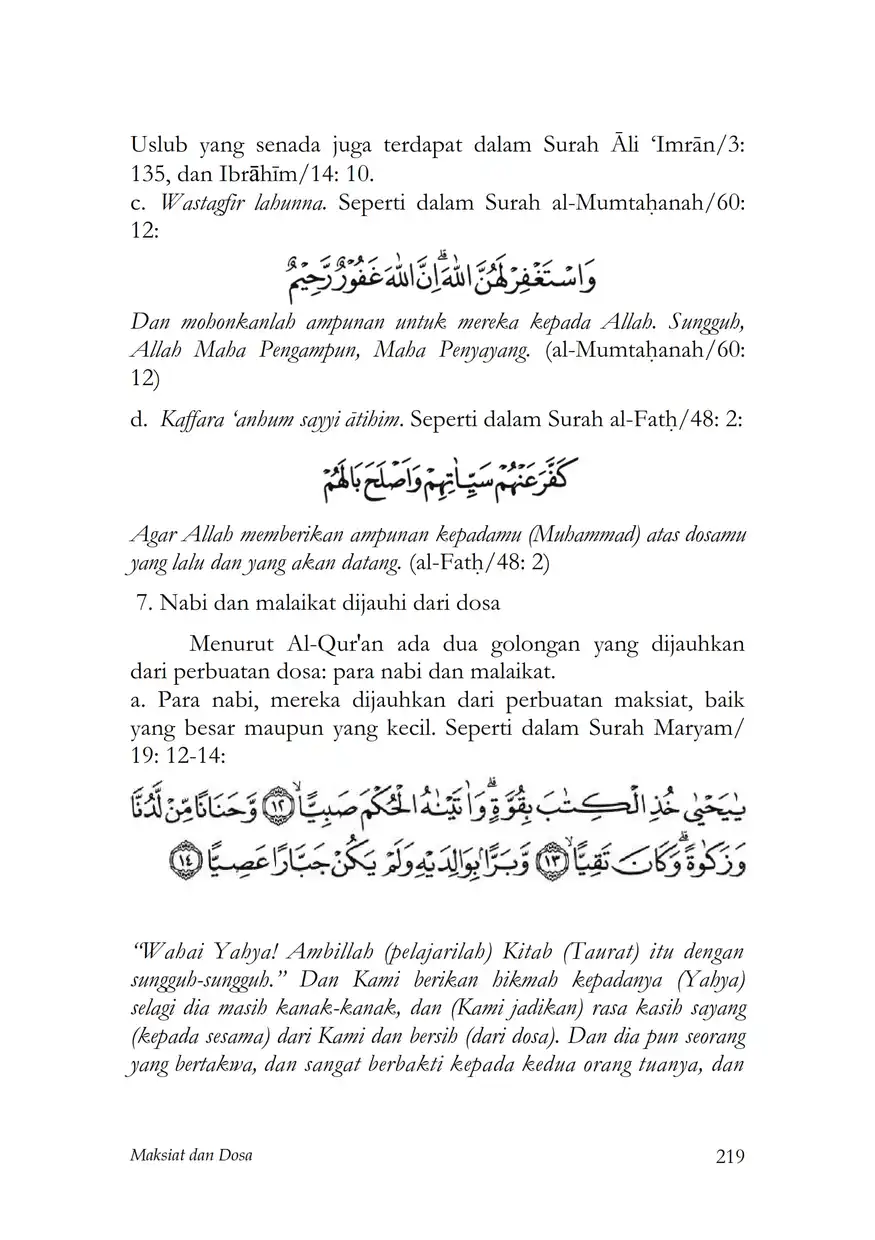 Uslub yang senada juga terdapat dalam Surah Āli ‘Imrān/3:
135, dan Ibrāhīm/14: 10.
c. Wastagfir lahunna. Seperti dalam Surah al-Mumtaḥanah/60:
12:
وَاسْتَغْفِرْ لَهُنَّ اللّٰهَ ۗاِنَّ اللّٰهَ غَفُوْرٌ رَّحِيْمٌ
Dan mohonkanlah ampunan untuk mereka kepada Allah. Sungguh,
Allah Maha Pengampun, Maha Penyayang. (al-Mumtaḥanah/60:
12)
d. Kaffara ‘anhum sayyi ātihim. Seperti dalam Surah al-Fatḥ/48: 2:
كَفَّرَ عَنْهُمْ سَيِّاٰتِهِمْ وَاَصْلَحَ بَالَهُمْ
Agar Allah memberikan ampunan kepadamu (Muhammad) atas dosamu
yang lalu dan yang akan datang. (al-Fatḥ/48: 2)
7. Nabi dan malaikat dijauhi dari dosa
Menurut Al-Qur'an ada dua golongan yang dijauhkan
dari perbuatan dosa: para nabi dan malaikat.
a. Para nabi, mereka dijauhkan dari perbuatan maksiat, baik
yang besar maupun yang kecil. Seperti dalam Surah Maryam/
19: 12-14:
يٰيَحْيٰى خُذِ الْكِتٰبَ بِقُوَّةٍ ۗوَاٰتَيْنٰهُ الْحُكْمَ صَبِيًّاۙ ١٢ وَّحَنَانًا مِّنْ لَّدُنَّا
وَزَكٰوةً ۗوَكَانَ تَقِيًّاۙ ١٣ وَّبَرًّاۢ بِوَالِدَيْهِ وَلَمْ يَكُنْ جَبَّارًا عَصِيًّا ١٤
“Wahai Yahya! Ambillah (pelajarilah) Kitab (Taurat) itu dengan
sungguh-sungguh.” Dan Kami berikan hikmah kepadanya (Yahya)
selagi dia masih kanak-kanak, dan (Kami jadikan) rasa kasih sayang
(kepada sesama) dari Kami dan bersih (dari dosa). Dan dia pun seorang
yang bertakwa, dan sangat berbakti kepada kedua orang tuanya, dan
Maksiat dan Dosa 219